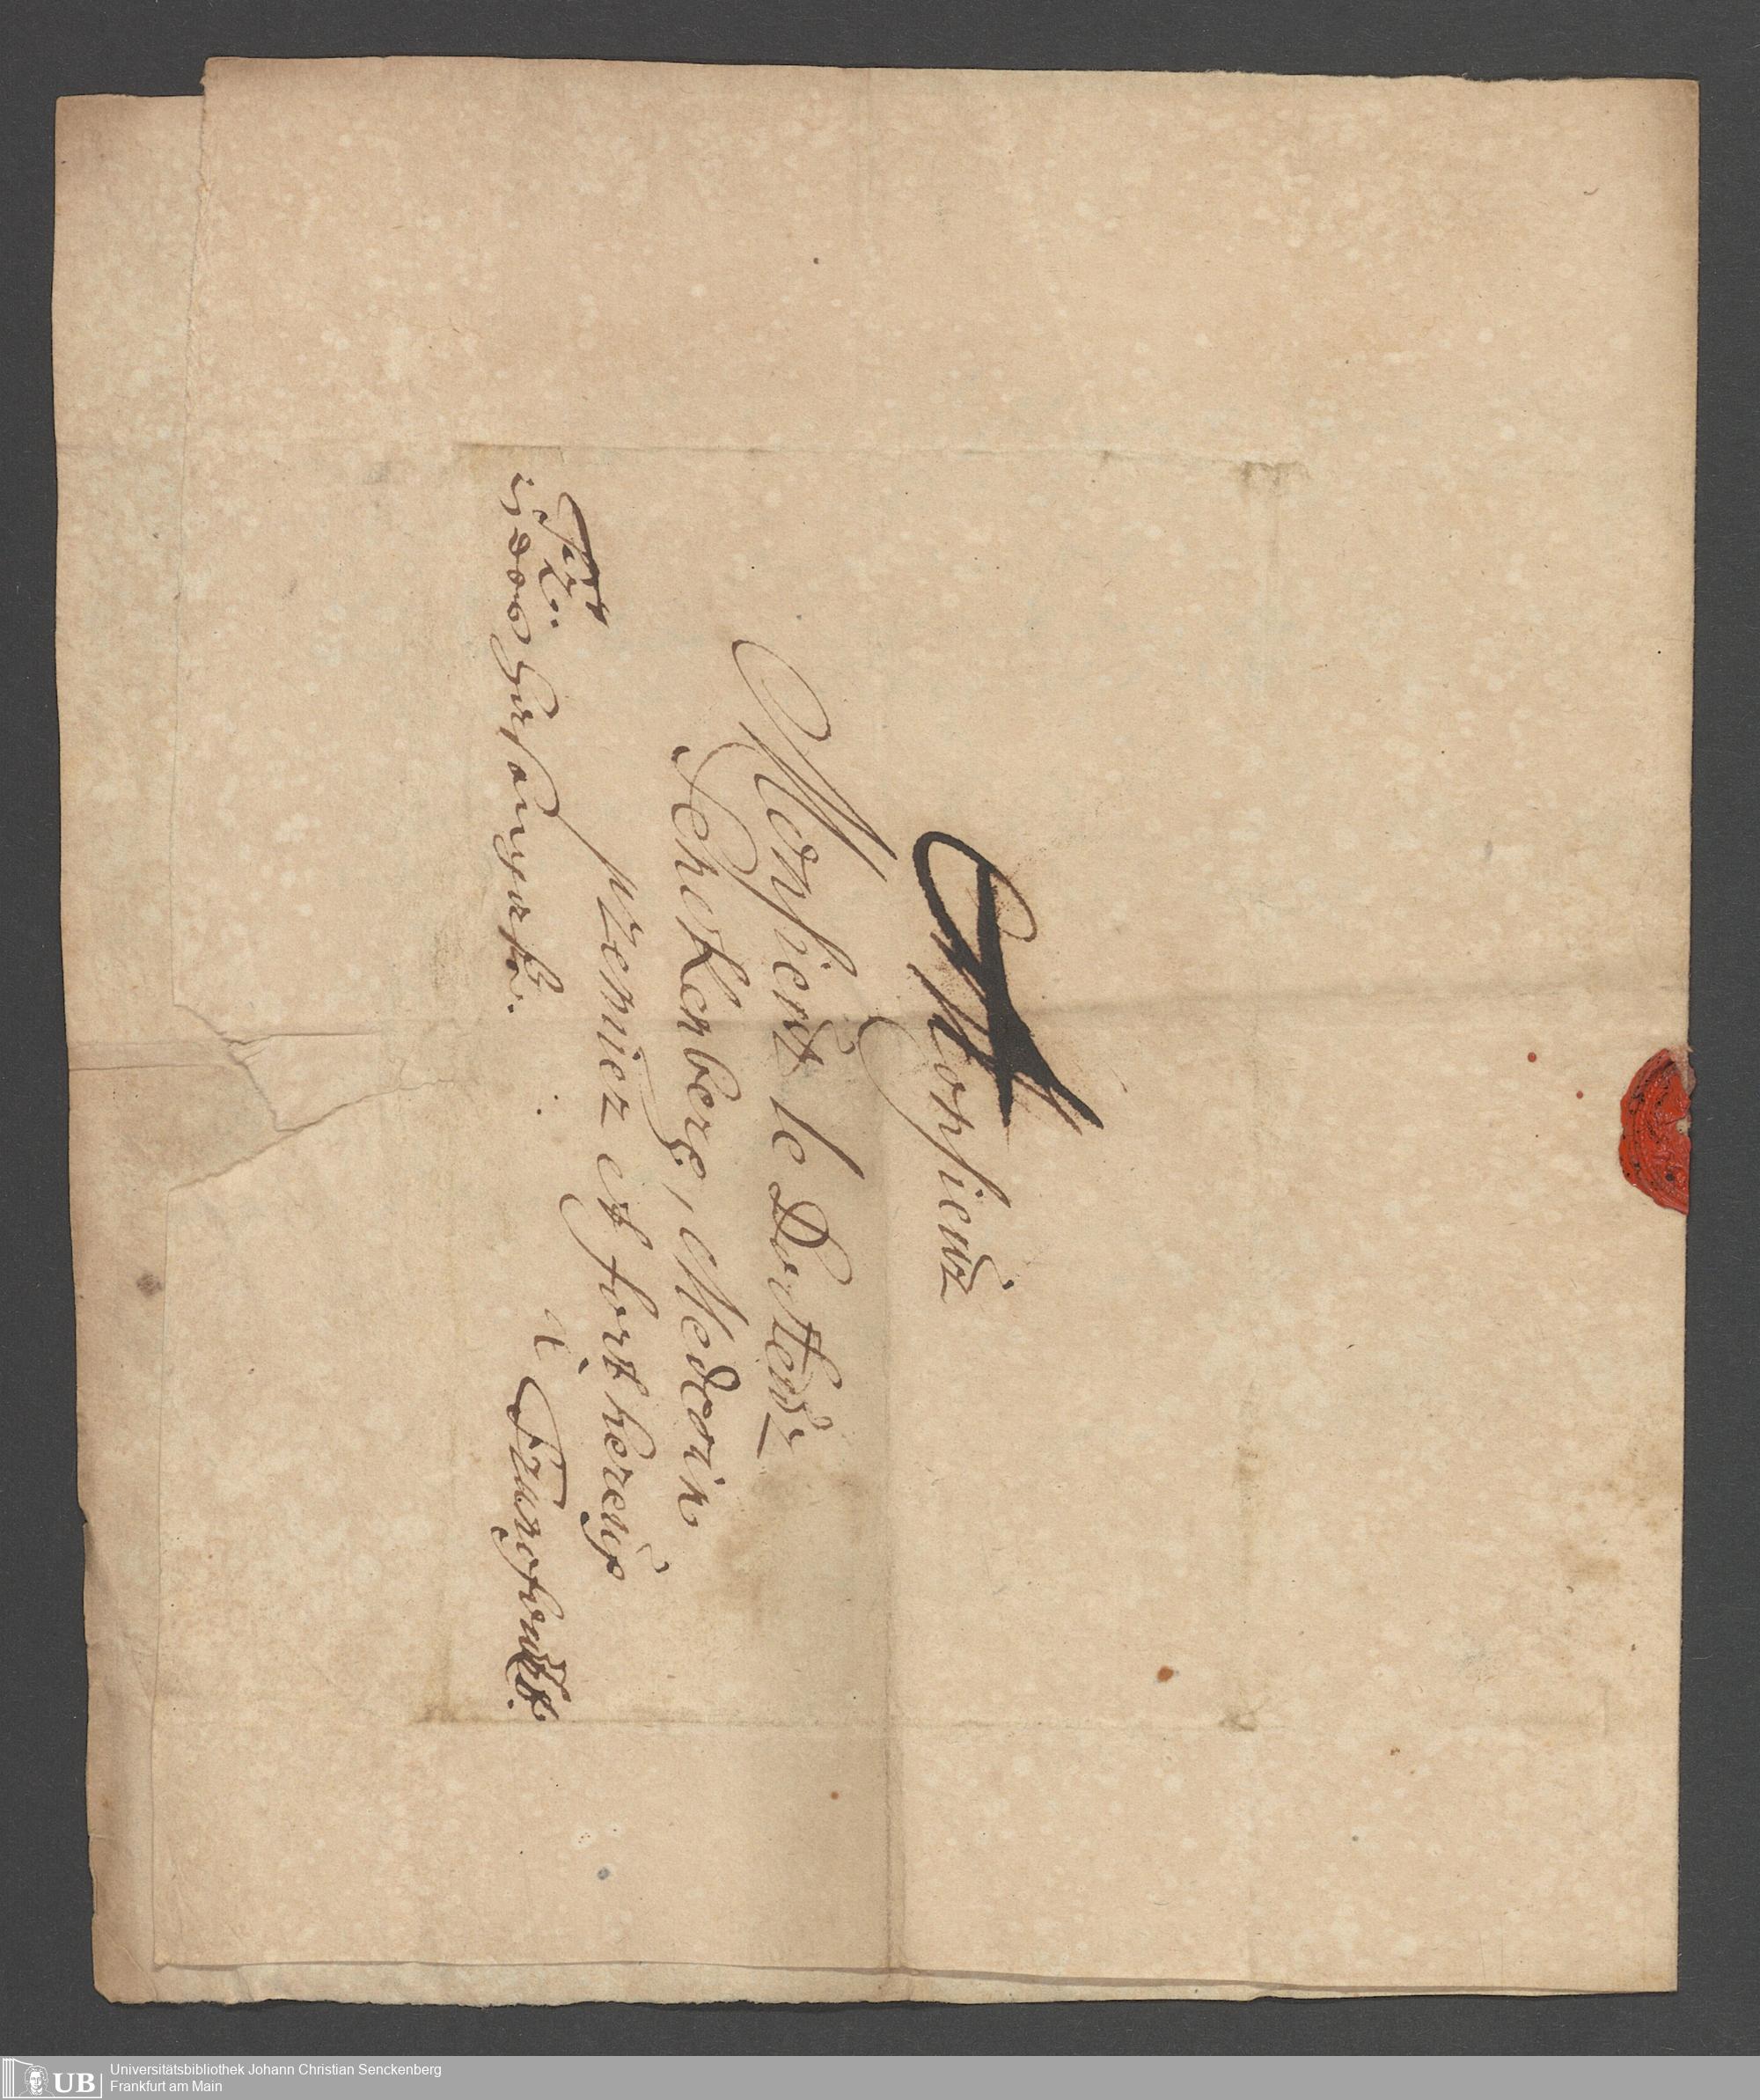 A Monsieur
Monsieur le Docteur
Senckenberg, Medecin
premier et fort hereuse
p
à Francfourt.
UB Universitätsbibliothek Johann Christian Senckenberg
Frankfurt am Main